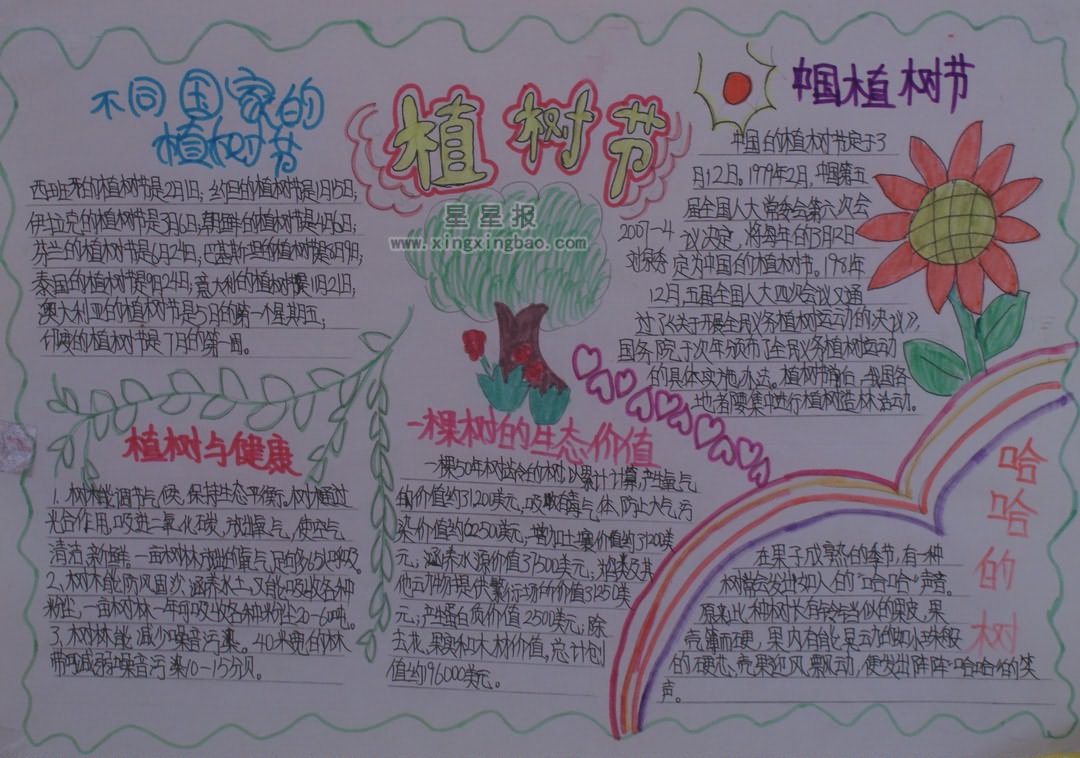 植树节
星星报
www.xingxingbao.com
不同国家的
植树节
西班牙的植树节是2月1日；约旦的植树节是1月15日；
伊拉克的植树节是3月6日；朝鲜的植树节是4月6日；
芬兰的植树节是6月24日；巴基斯坦的植树节是8月9日；
泰国的植树节是9月24日；意大利的植树节是11月21日；
澳大利亚的植树节是5月的第一个星期五；
印度的植树节是7月的第一周。
中国植树节
中国的植树节定于3
月12日。1979年2月，中国第五
届全国人大常委会第六次会
议决定，将每年的3月12日
定为中国的植树节。1981年
12月，五届全国人大四次会议又通
过了《关于开展全民义务植树运动的决议》，
国务院于次年颁布了全民义务植树运动
的具体实施办法。植树节前后，我国各
地都要集中进行植树造林活动。
2007-4
植树与健康
1、树木能调节气候，保持生态平衡。树木通过
光合作用，吸进二氧化碳，放出氧气，使空气
清洁、新鲜。一亩树林放出的氧气足够65人呼吸。
2、树木能防风固沙，涵养水土，又能吸收各种
粉尘，一亩树林一年可吸收各种粉尘20-60吨。
3、树林能减少噪音污染。40米宽的林
带可减弱噪音污染10-15分贝。
一棵树的生态价值
一棵50年树龄的树，以累计计算，产生氧气
的价值约31200美元，吸收有毒气体、防止大气污
染价值约62500美元；增加土壤价值约31200美
元；涵养水源价值37500美元；为鸟类及其
他动物提供繁衍场所价值31250美
元；产生蛋白质价值2500美元；除
去花、果实和木材价值，总计创
值约196000美元。
哈哈的树
在果子成熟的季节，有一种
树常会发出如人的“哈哈”声音。
原来此种树长有铃铛似的果皮，果
壳薄而硬，果内有能滚动的如小珠般
的硬芯，壳果迎风飘动，便发出阵阵“哈哈”的笑
声。